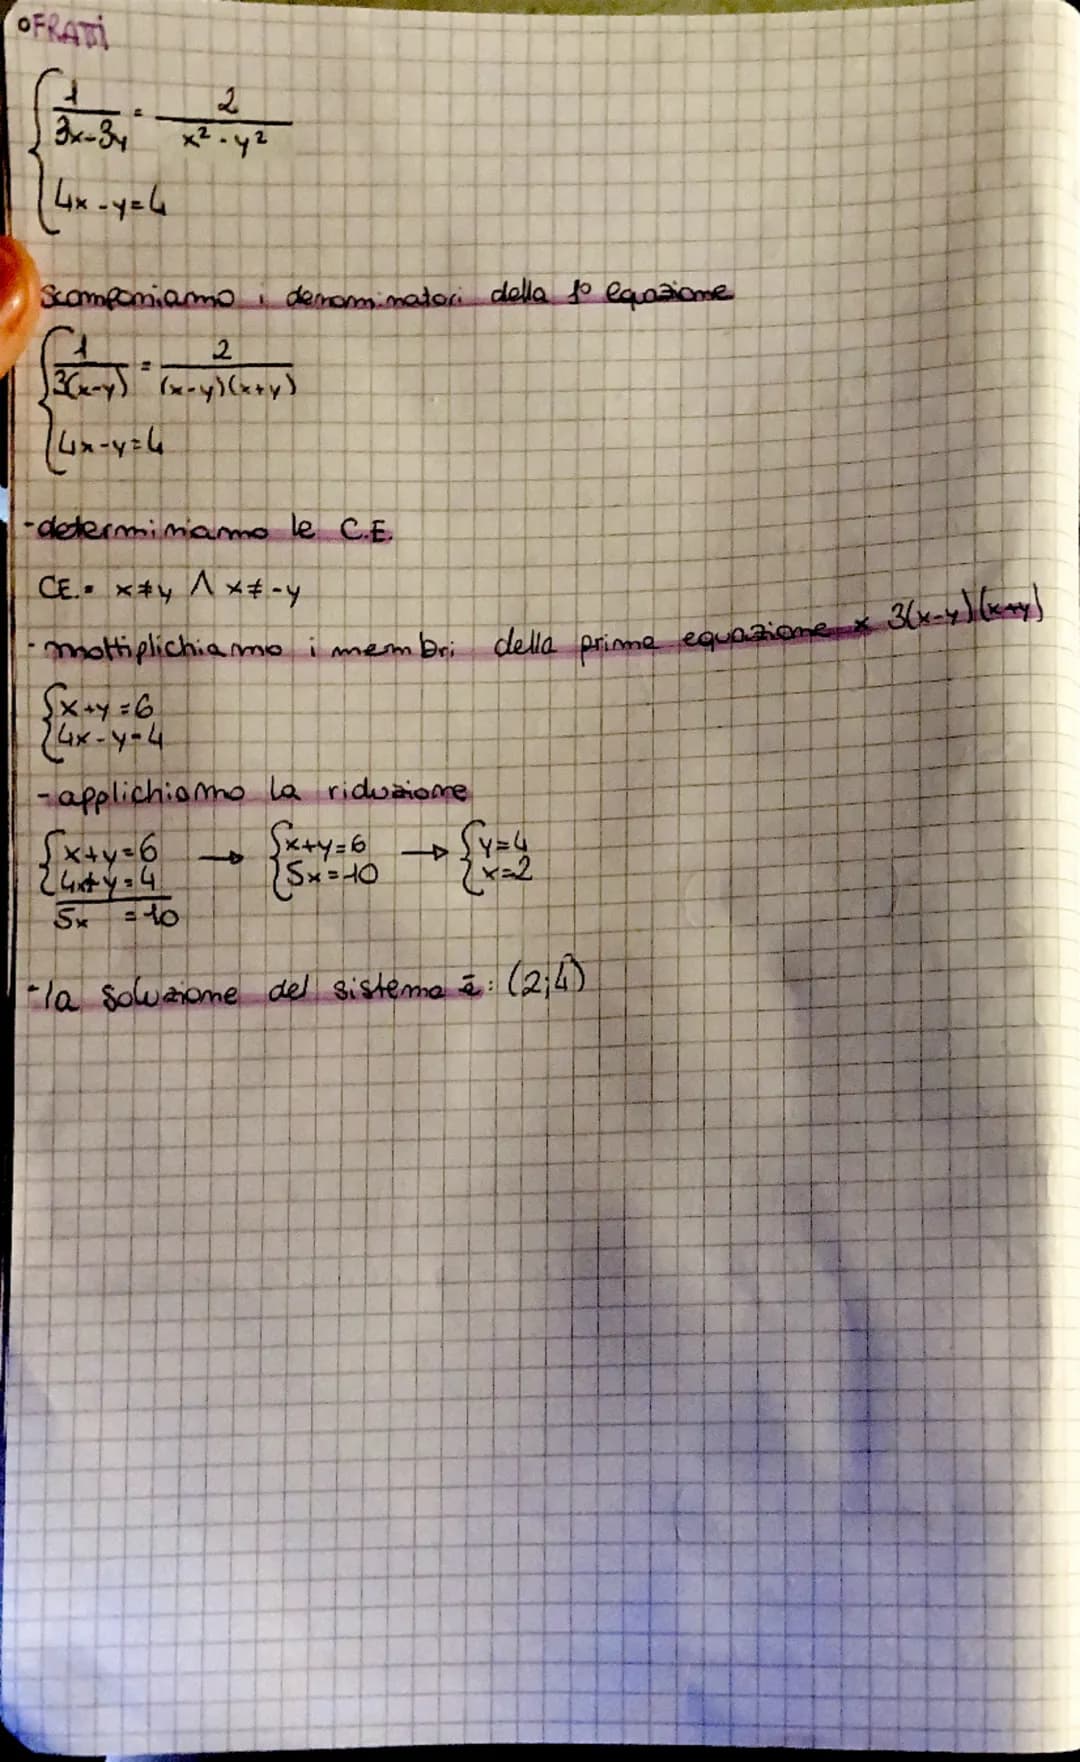 °FRATTI
1/(3x-3y) = 2/(x²-y²)
4x-y=4
Scomponiamo i denominatori della 1° equazione
1/(3(x-y)) = 2/((x-y)(x+y))
4x-y=4
-determiniamo le C.E.
CE.= x≠y ∧ x≠-y
-moltiplichiamo i membri della prima equazione x 3(x-y)(x+y)
x+y=6
4x-y=4
-applichiamo la riduzione
{x+y=6 → {x+y=6 → {y=4
4x+y=4 5x=10 x=2
5x =10
-la soluzione del sistema è: (2;4)